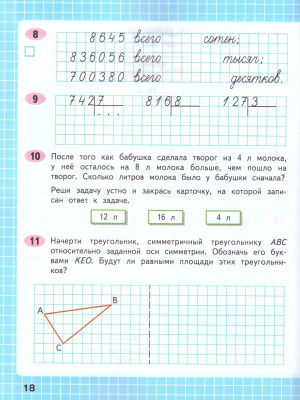 8 8645 всего сотен;
836056 всего тысяч;
700380 всего десятков.
9 7427 8168 1273
10 После того как бабушка сделала творог из 4 л молока,
у неё осталось на 8 л молока больше, чем пошло на
творог. Сколько литров молока было у бабушки сначала?
Реши задачу устно и закрась карточку, на которой запи-
сан ответ к задаче.
12 л 16 л 4 л
11 Начерти треугольник, симметричный треугольнику ABC
относительно заданной оси симметрии. Обозначь его бук-
вами KEO. Будут ли равными площади этих треугольни-
ков?
B
A
C
18